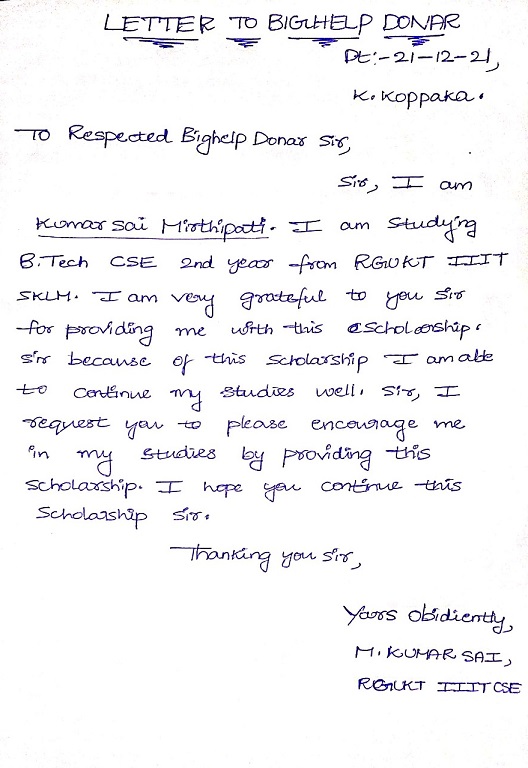 LETTER TO BIGHELP DONAR
Dt:-21-12-21,
K. Koppaka.
To Respected Bighelp Donar Sir,
Sir, I am
Kumar sai Mirthipati. I am Studying
B.Tech CSE 2nd year from RGUKT IIIT
SKLM. I am very grateful to you Sir
for providing me with this Scholorship.
Sir because of this Scholarship I am able
to continue my studies well. Sir, I
request you to please encourage me
in my studies by providing this
Scholarship. I hope you continue this
Scholarship Sir.
Thanking you Sir,
Yours Obidiently,
M. KUMAR SAI,
RGUKT IIIT CSE